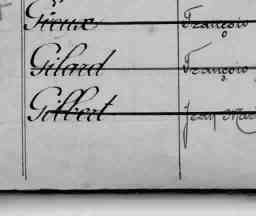 Gieux François
Gilard François
Gilbert Jean Mar